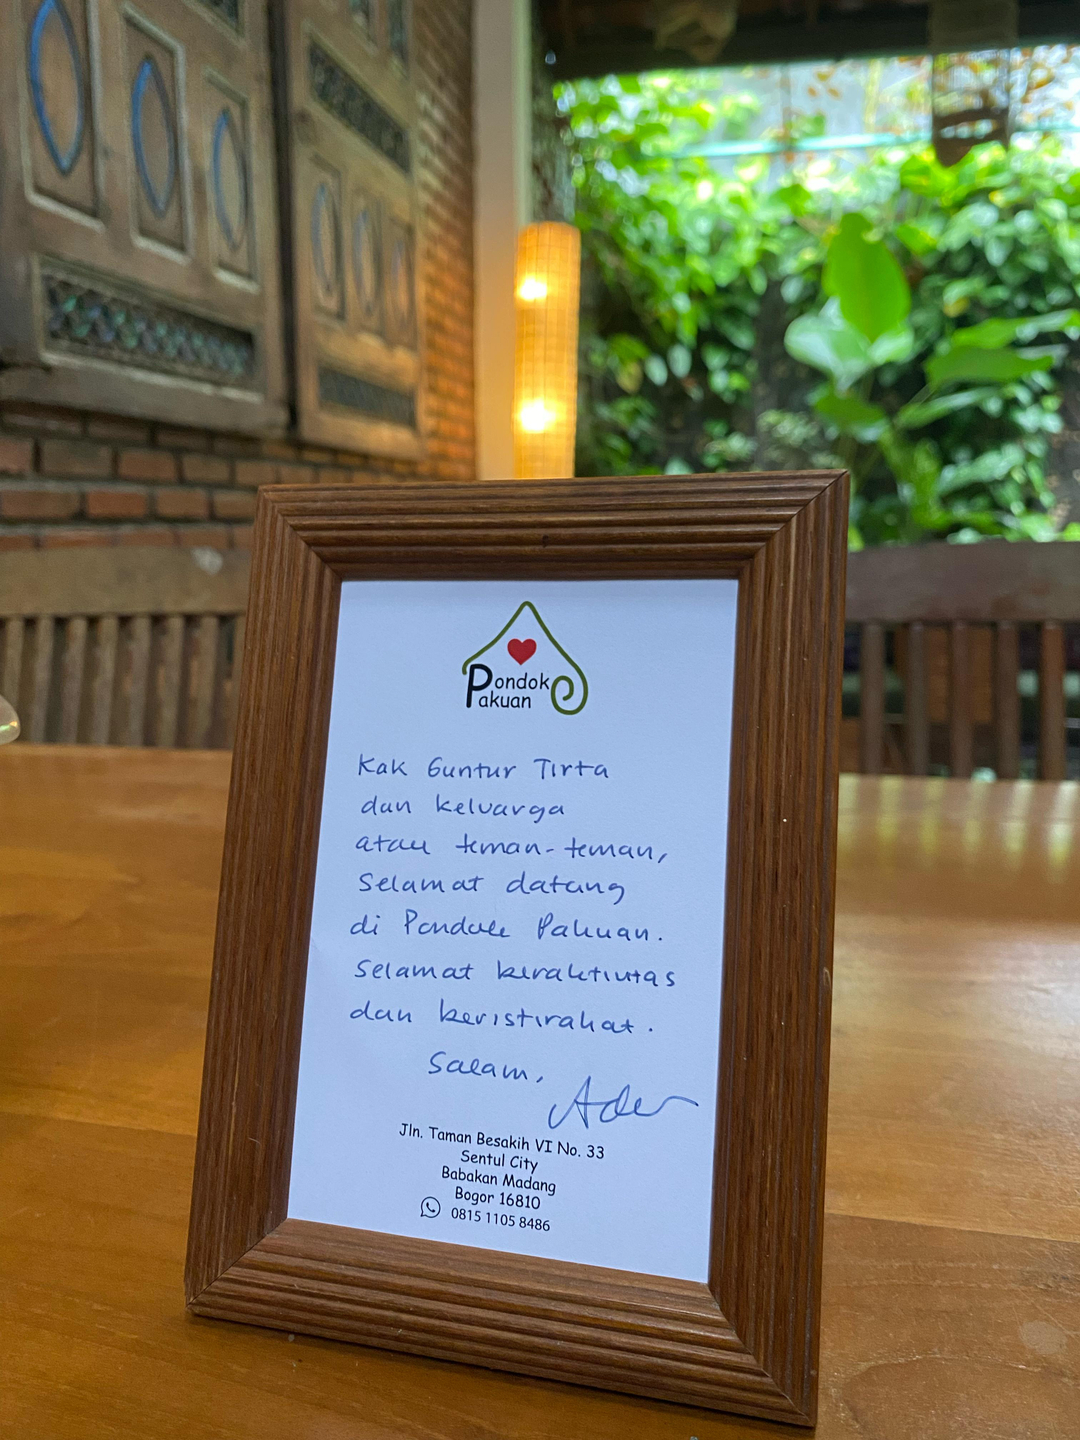 Pondok
Pakuan
Kak Guntur Tirta
dan keluarga
atau teman-teman,
Selamat datang
di Pondok Pakuan.
Selamat beraktivitas
dan beristirahat.
Salam,
Ade
Jln. Taman Besakih VI No. 33
Sentul City
Babakan Madang
Bogor 16810
0815 1105 8486